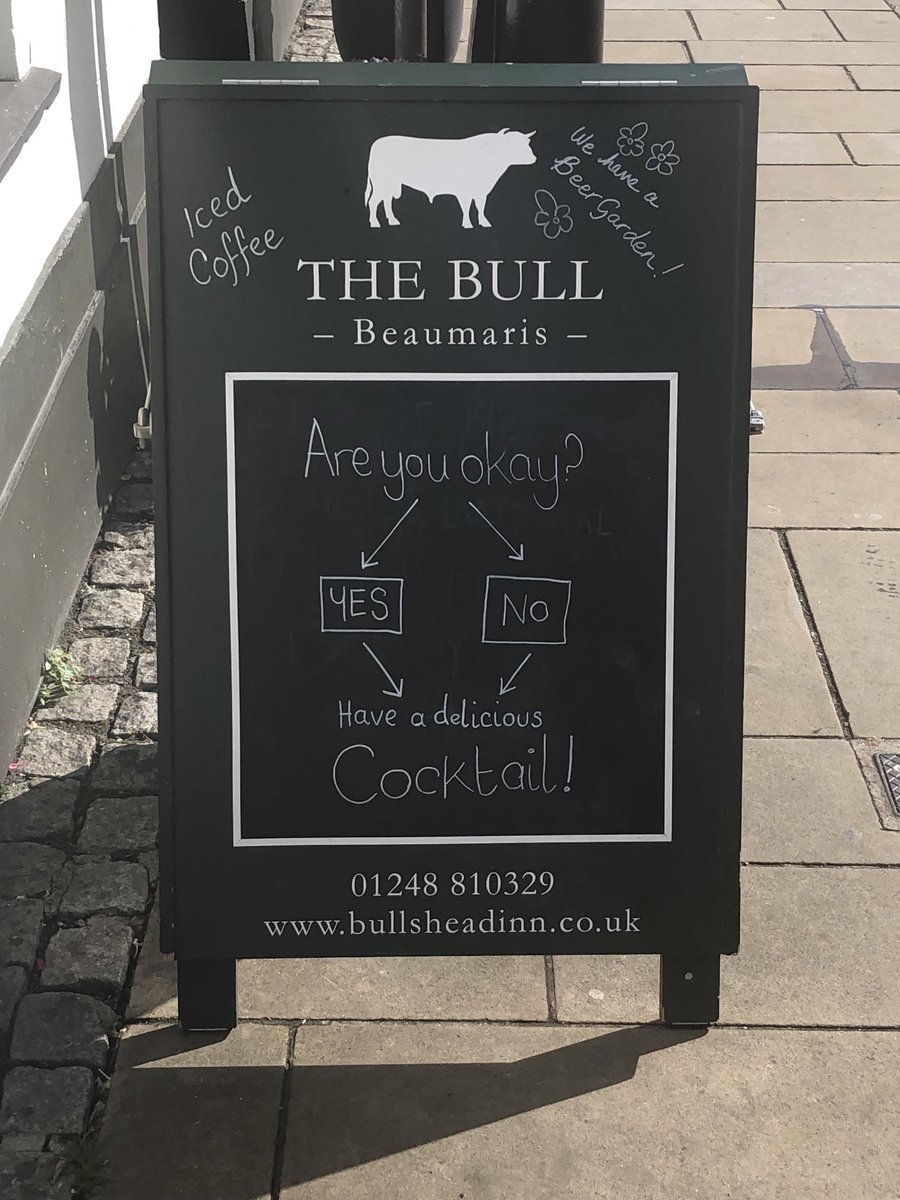 Iced
Coffee
We have a
Beer Garden!
THE BULL
– Beaumaris –
Are you okay?
YES
NO
Have a delicious
Cocktail!
01248 810329
www.bullsheadinn.co.uk